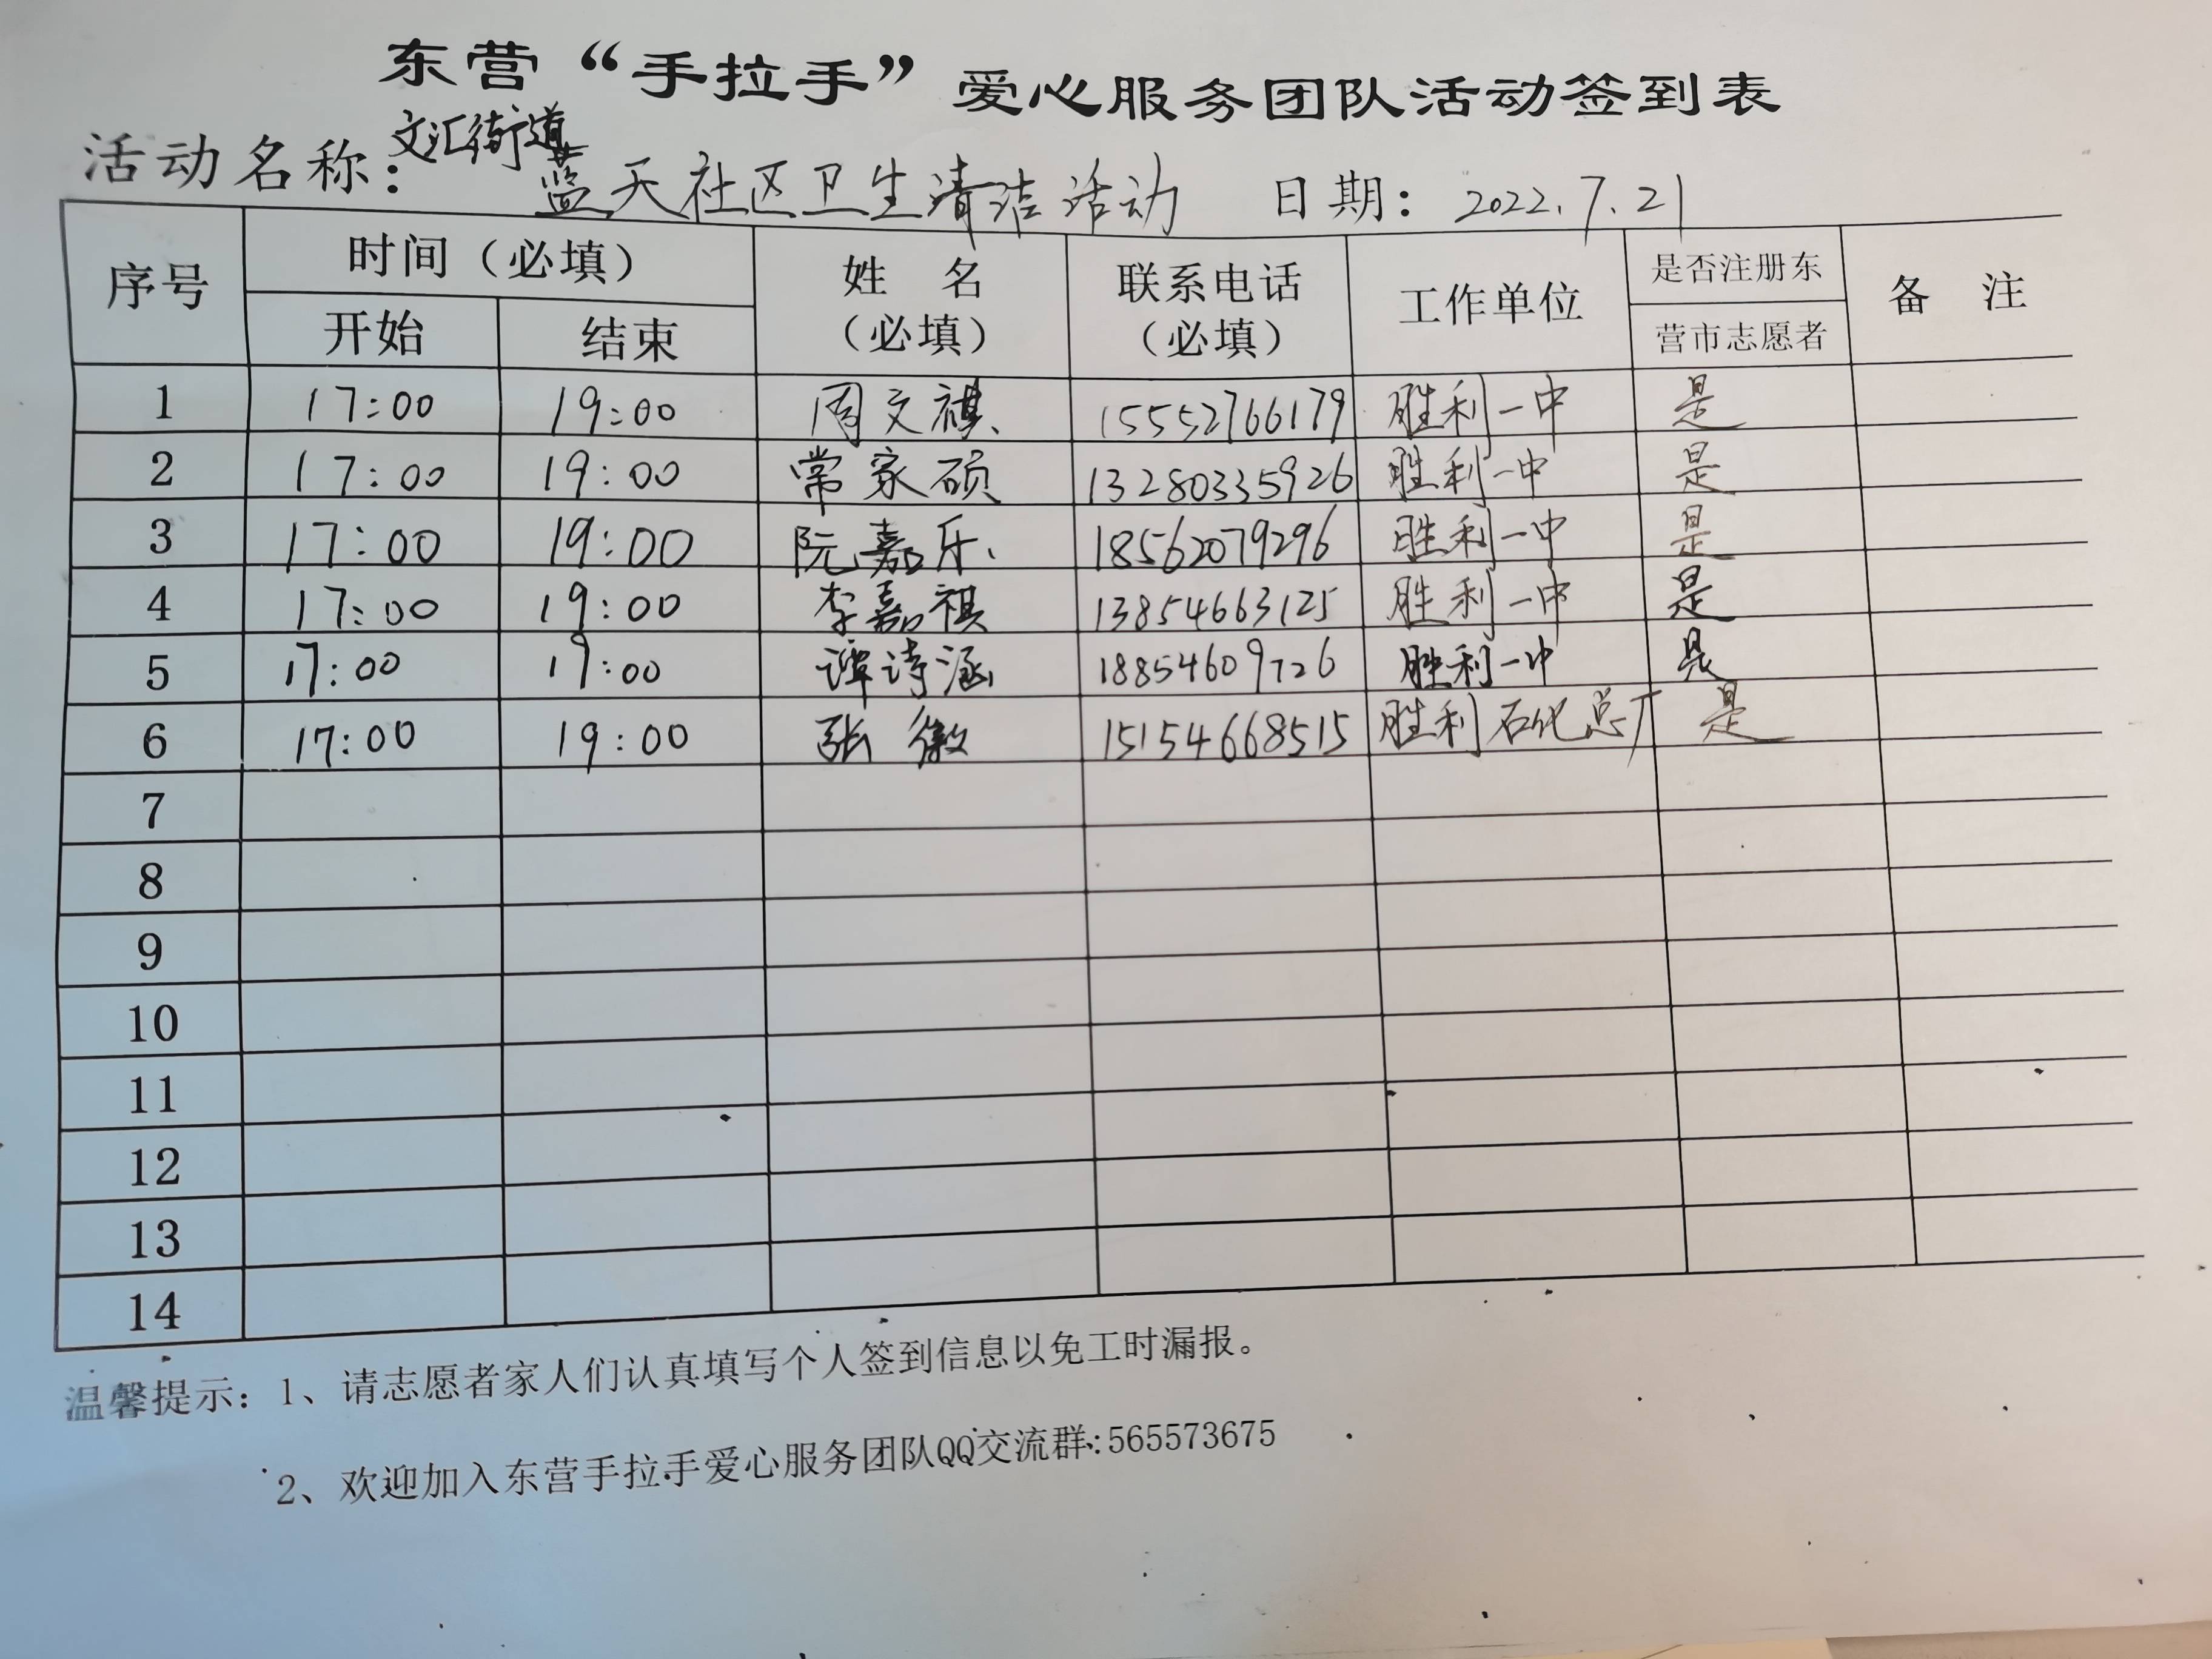 东营“手拉手”爱心服务团队活动签到表
活动名称：文汇街道蓝天社区卫生清洁活动 日期：2022.7.21
序号 时间（必填） 开始 结束 姓 名（必填） 联系电话（必填） 工作单位 是否注册东营市志愿者 备 注
1 17:00 19:00 周文祺 15552766179 胜利一中 是
2 17:00 19:00 常家硕 13280335926 胜利一中 是
3 17:00 19:00 阮嘉乐 18562079296 胜利一中 是
4 17:00 19:00 李嘉祺 13854663125 胜利一中 是
5 17:00 19:00 谭诗涵 18854609726 胜利一中 是
6 17:00 19:00 张 15154668515 胜利石化总厂 是
7
8
9
10
11
12
13
14
温馨提示：1、请志愿者家人们认真填写个人签到信息以免工时漏报。
2、欢迎加入东营手拉手爱心服务团队QQ交流群:565573675